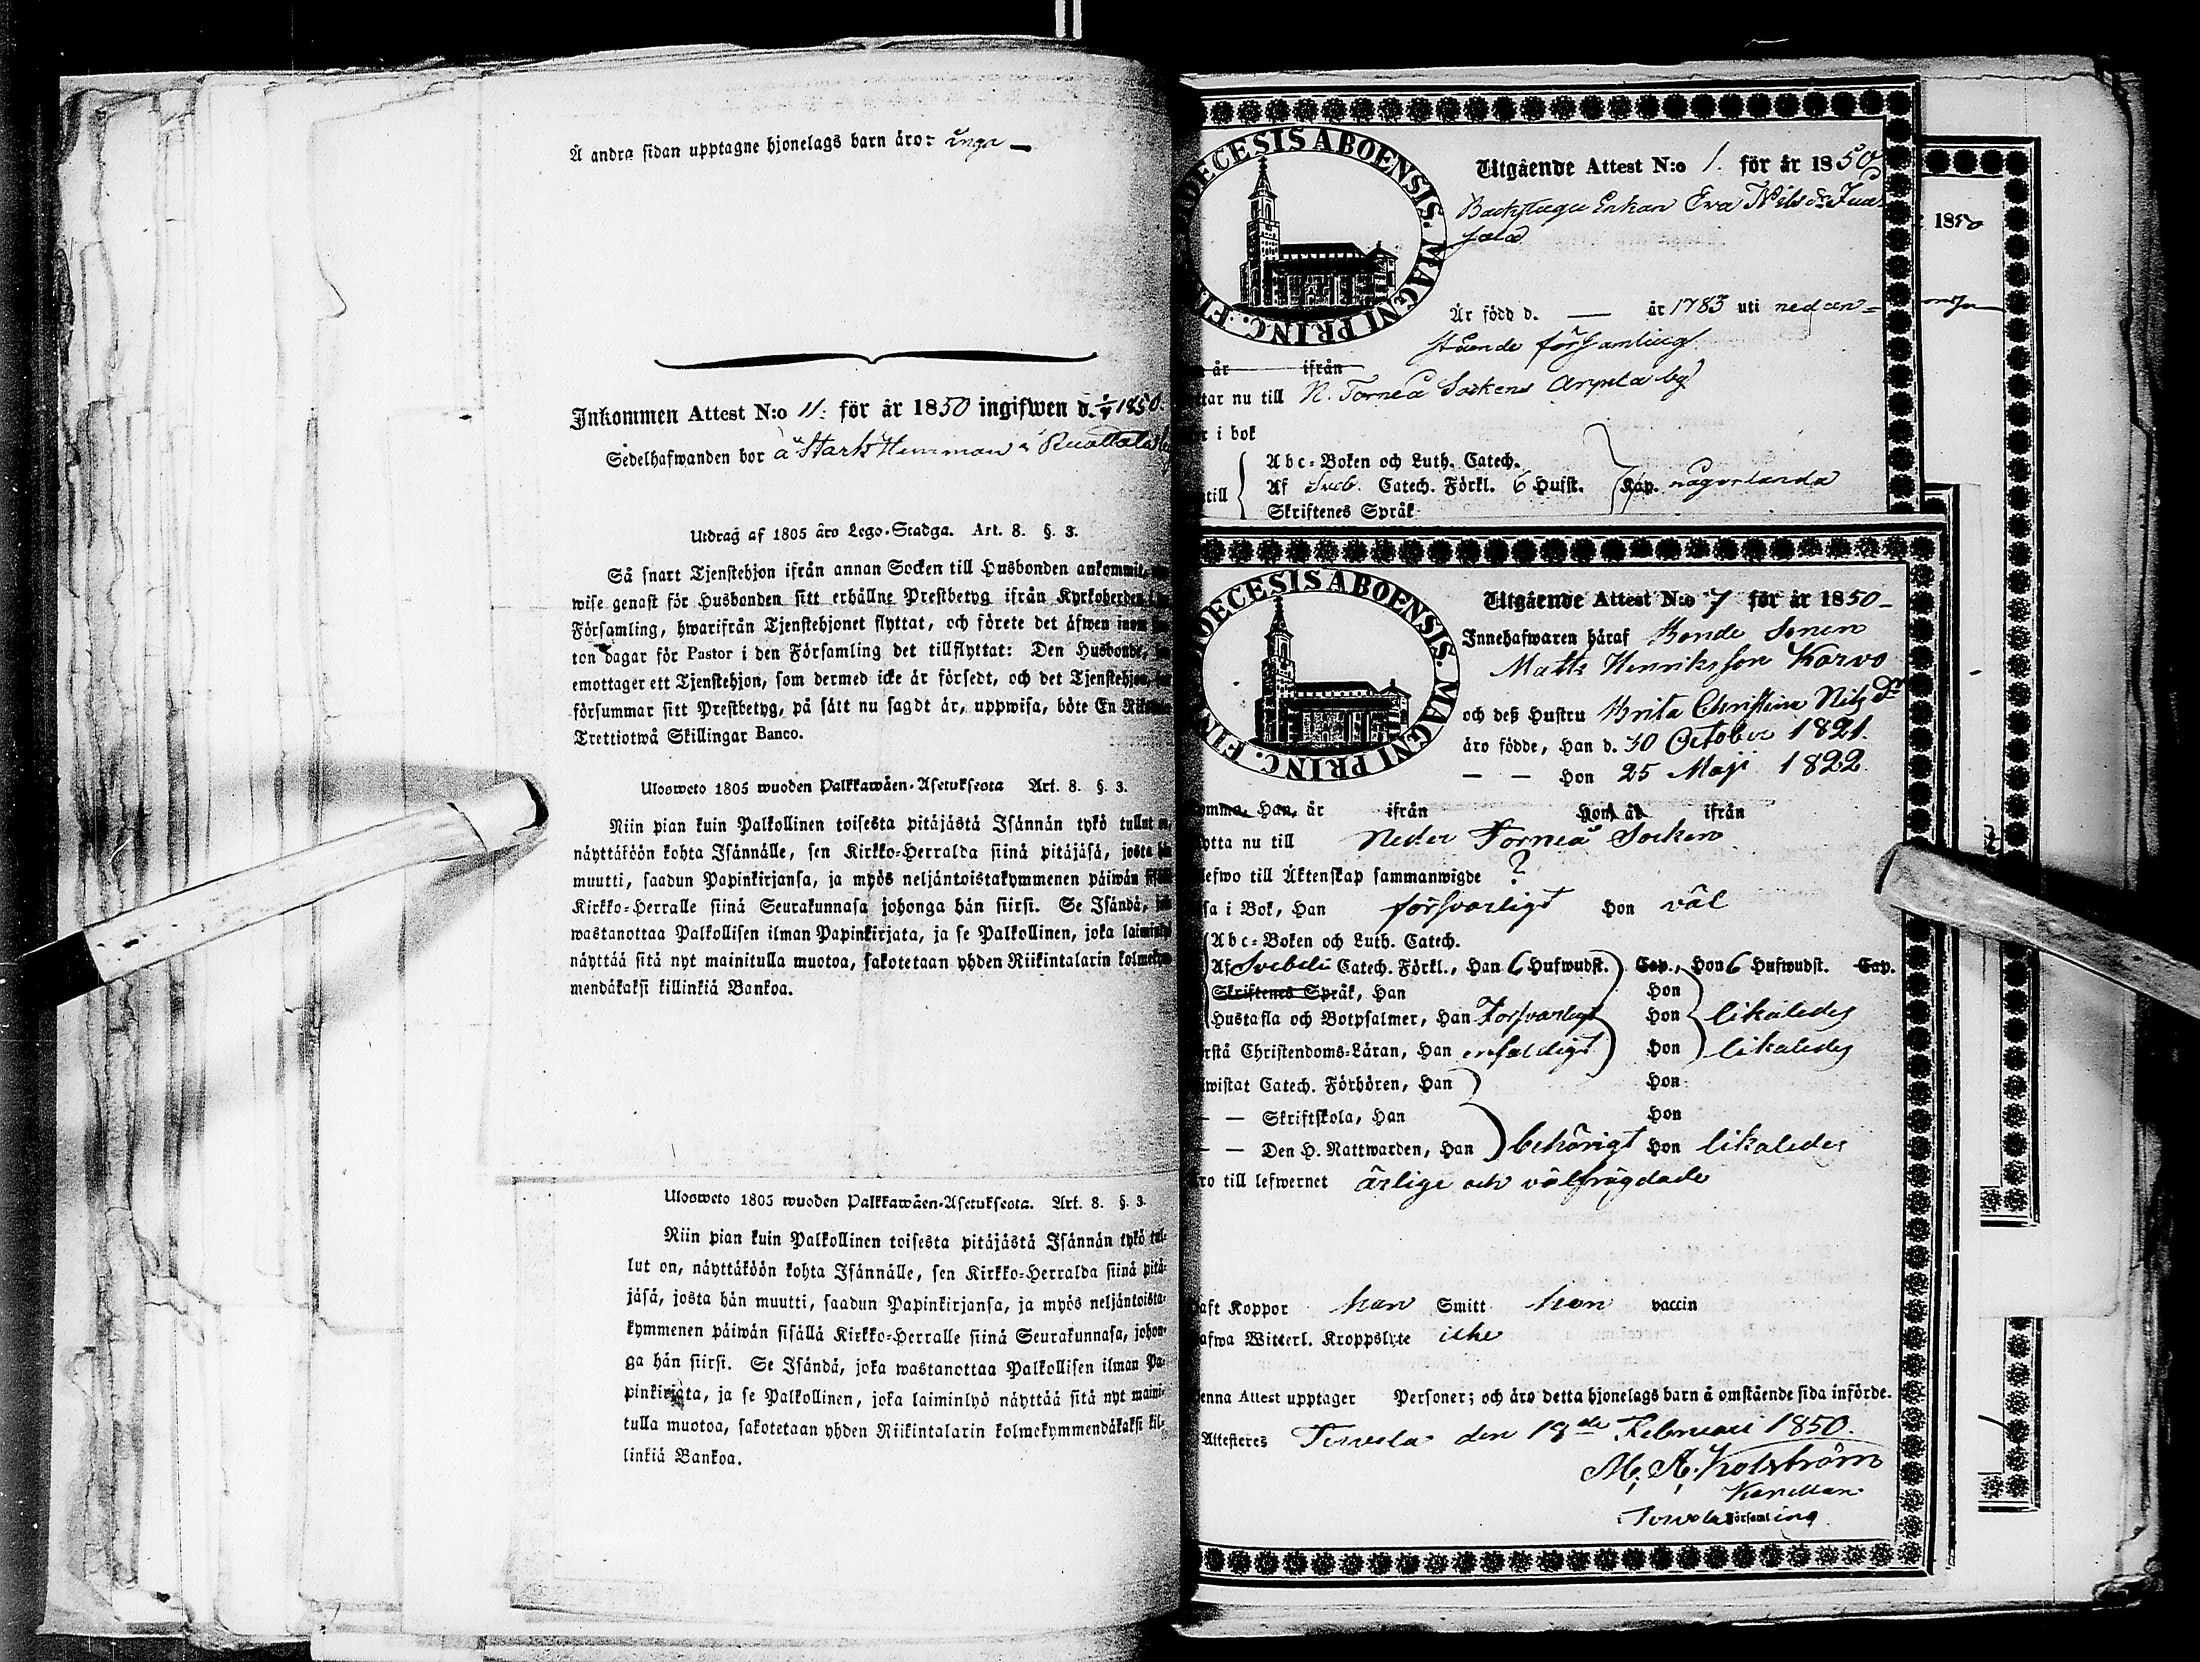 Å andra sidan upptagne hjonelags barn äro: inga —
Inkommen Attest N:o 11: för år 1850 ingifwen d. 1850.
Sedelhafwanden bor å Starks Hemman i
Utdrag af 1805 års Lego-Stadga. Art. 8. §. 3.
Så snart Tjenstehjon ifrån annan Socken till Husbonden ankommit,
wise genast för Husbonden sitt erhållne Prestbetyg ifrån Kyrkoherden
Församling, hwarifrån Tjenstehjonet flyttat, och förete det äfwen inom
ton dagar för Pastor i den Församling det tillflyttat: Den Husbonde,
emottager ett Tjenstehjon, som dermed icke är försedt, och det Tjenstehjon,
försummar sitt Prestbetyg, på sätt nu sagdt är, uppwisa, böte En
Trettiotwå Skillingar Banco.
Ulosweto 1805 wuoden Palkkawäen-Asetuksesta Art. 8. §. 3.
Niin pian kuin Palkollinen toisesta pitäjästä Isännän tykö tullut on,
näyttäköön kohta Isännälle, sen Kirkko-Herralda siinä pitäjäsä, josta hän
muutti, saadun Papinkirjansa, ja myös neljäntoistakymmenen päiwän
Kirkko-Herralle siinä Seurakunnasa johonga hän siirsi. Se Isändä,
wastanottaa Palkollisen ilman Papinkirjata, ja se Palkollinen, joka laiminlyö
näyttää sitä nyt mainitulla muotoa, sakotetaan yhden Riikintalarin
mendäkaksi killinkiä Bankoa.
Ulosweto 1805 wuoden Palkkawäen-Asetuksesta. Art. 8. §. 3.
Niin pian kuin Palkollinen toisesta pitäjästä Isännän tykö tul-
lut on, näyttäköön kohta Isännälle, sen Kirkko-Herralda siinä pitä-
jäsä, josta hän muutti, saadun Papinkirjansa, ja myös neljäntoista-
kymmenen päiwän sisällä Kirkko-Herralle siinä Seurakunnasa, johon-
ga hän siirsi. Se Isändä, joka wastanottaa Palkollisen ilman Pa-
pinkirjata, ja se Palkollinen, joka laiminlyö näyttää sitä nyt maini-
tulla muotoa, sakotetaan yhden Riikintalarin kolmekymmendäkaksi kil-
linkiä Bankoa.
DIOECESIS ABOENSIS. MAGNI PRINC. FIN
Utgående Attest N:o 1. för år 1850
Backstugu Enkan Eva Nils dr
Är född d. — år 1783 uti nedan-
stående församling
år ifrån
nu till N. Torneå Sockens Arpela by
i bok
Abc-Boken och Luth. Catech.
till Af Sveb. Catech. Förkl. 6 Hufst. Kap. någorlunda
Skriftenes Språk
1850
DIOECESIS ABOENSIS. MAGNI PRINC. FIN
Utgående Attest N:o 7 för år 1850-
Innehafwaren häraf Bonde Sonen
Matts Henriksson Karvo
och deß Hustru Brita Christina Nils Dr
äro födde, Han d. 30 October 1821.
— — Hon 25 Maji 1822
Han, år ifrån Hon, år ifrån
nu till Neder Torneå Socken
till Äktenskap sammanwigde ?
i Bok, Han försvarligt Hon väl
Abc-Boken och Luth. Catech.
Af Svebelii Catech. Förkl., Han 6 Hufwudst. Cap., Hon 6 Hufwudst. Cap.
Skriftenes Språk, Han Hon
Hustafla och Botpsalmer, Han Försvarligt Hon likaledes
Christendoms-Läran, Han enfaldigt Hon likaledes
Catech. Förhören, Han Hon
— — Skriftskola, Han Hon
— — Den H. Nattwarden, Han behörigt Hon likaledes
till lefwernet ärlige och välfrägdade
Koppor han Smitt hon vaccin
Witterl. Kroppslyte icke
Attest upptager Personer; och äro detta hjonelags barn å omstående sida införde.
Attesteres Terwola den 18de Februari 1850.
M. A. Holmström
Kapellan
Terwola Församling